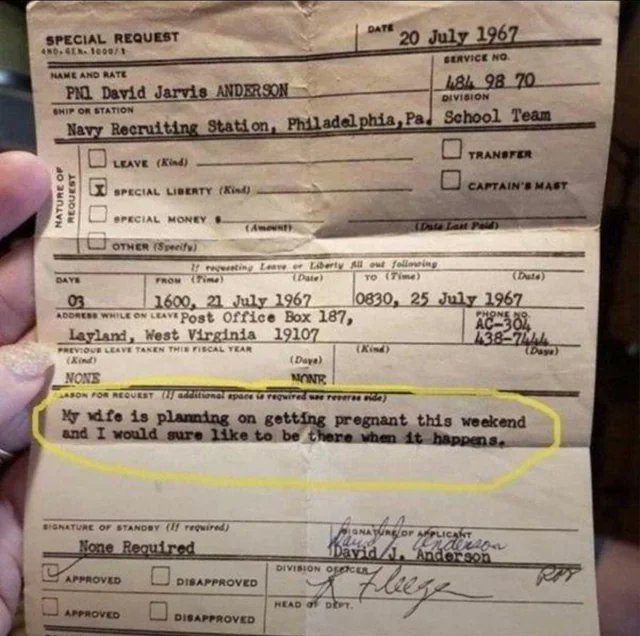 SPECIAL REQUEST
DATE 20 July 1967
SERVICE NO.
NAME AND RATE
PN1 David Jarvis ANDERSON
484 98 70
SHIP OR STATION
DIVISION
Navy Recruiting Station, Philadelphia, Pa. School Team
NATURE OF REQUEST
LEAVE (Kind)
TRANSFER
X SPECIAL LIBERTY (Kind)
CAPTAIN'S MAST
SPECIAL MONEY $
(Amount) (Date Last Paid)
OTHER (Specify)
If requesting Leave or Liberty fill out following
DAYS FROM (Time) (Date) TO (Time) (Date)
03 1600, 21 July 1967 0830, 25 July 1967
ADDRESS WHILE ON LEAVE Post Office Box 187,
PHONE NO.
AC-304
Layland, West Virginia 19107
438-7444
PREVIOUS LEAVE TAKEN THIS FISCAL YEAR
(Kind) (Days) (Kind) (Days)
NONE NONE
REASON FOR REQUEST (If additional space is required use reverse side)
My wife is planning on getting pregnant this weekend
and I would sure like to be there when it happens.
SIGNATURE OF STANDBY (If required)
SIGNATURE OF APPLICANT
None Required
David J. Anderson
David J. Anderson
APPROVED DISAPPROVED
DIVISION OFFICER
APPROVED DISAPPROVED
HEAD OF DEPT.